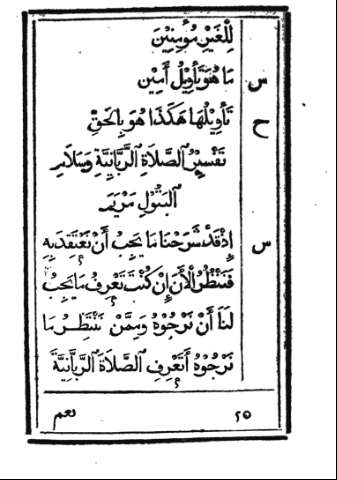 لِلْغَيْرِ مُؤمِنِيْنَ
س مَا هُوَ تَأوِيْلُ أَمِيْن
ح تَأوِيْلُهَا هَكَذَا هُوَ بِالحَقِّ
تَفْسِيْرُ الصَّلَاةِ الرَّبَّانِيَّةِ وَسَلَامِ
البَتُوْلِ مَرْيَم
س إِذْ قَدْ شَرَحْنَا مَا يَجِبُ أَنْ نَعْتَقِدَ بِهِ
فَنَنْظُرُ الْأَنَ إِنْ كُنْتَ تَعْرِفُ مَا يَجِبُ
لَنَا أَنْ نَرْجُوْهُ وَمِمَّنْ نَنْتَظِرُ مَا
نَرْجُوْهُ أَتَعْرِفُ الصَّلَاةَ الرَّبَّانِيَّةَ
٢٥ نعم